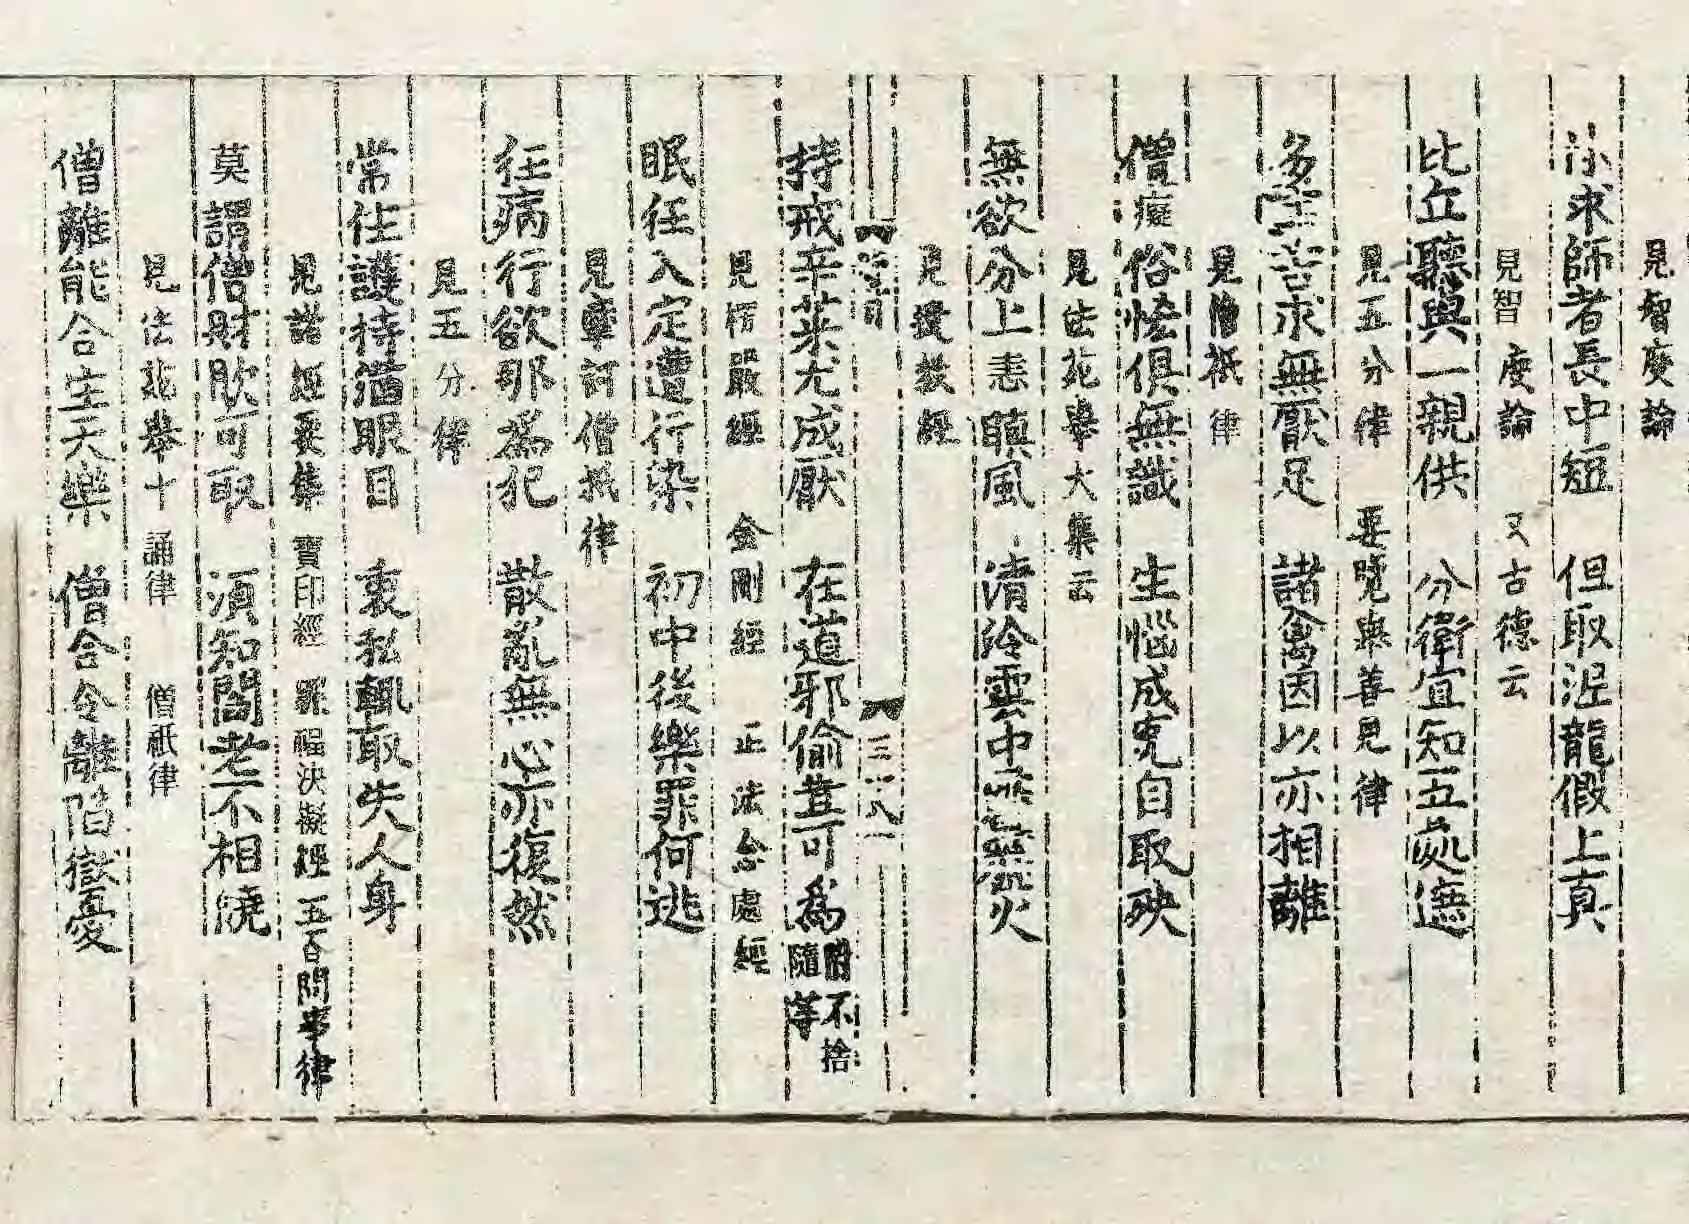 見智度論
求師者長中短 但取泥龍假上真
見智度論 又古德云
比丘聽與一親供 分衛宜知五處遮
見五分律 要覽與善見律
多 苦求無厭足 諸禽因以亦相離
見僧祇律
僧癡俗恡俱無識 生惱成 自取殃
見法苑舉大集云
無欲分上恚瞋風 清冷雲中 火
見遺教經
三 八
持戒辛菜尤成厭 在道邪偷豈可爲 附不捨 隨等
見楞嚴經 金剛經 正法念處經
眠任入定遭行染 初中後樂罪何逃
見 訶僧祇律
狂病行欲那爲犯 散亂無心亦復然
見五分律
常住護持猶眼目 衷私輒取失人身
見諸經要集 寶印經 罪福決疑經 五百問事律
莫謂借財欺可取 須知閻老不相饒
見法苑舉十誦律 僧祇律
僧離能合生天樂 僧合令離陷獄憂